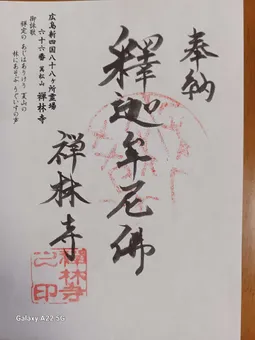 奉納
釋迦牟尼佛
禅林寺
広島新四国八十八ヶ所霊場
六十六番 萬松山 禅林寺
御詠歌
禅定の あじはありけり 夏山の
林にあそぶ うぐいすの声
禅林寺
印
Galaxy A22 5G